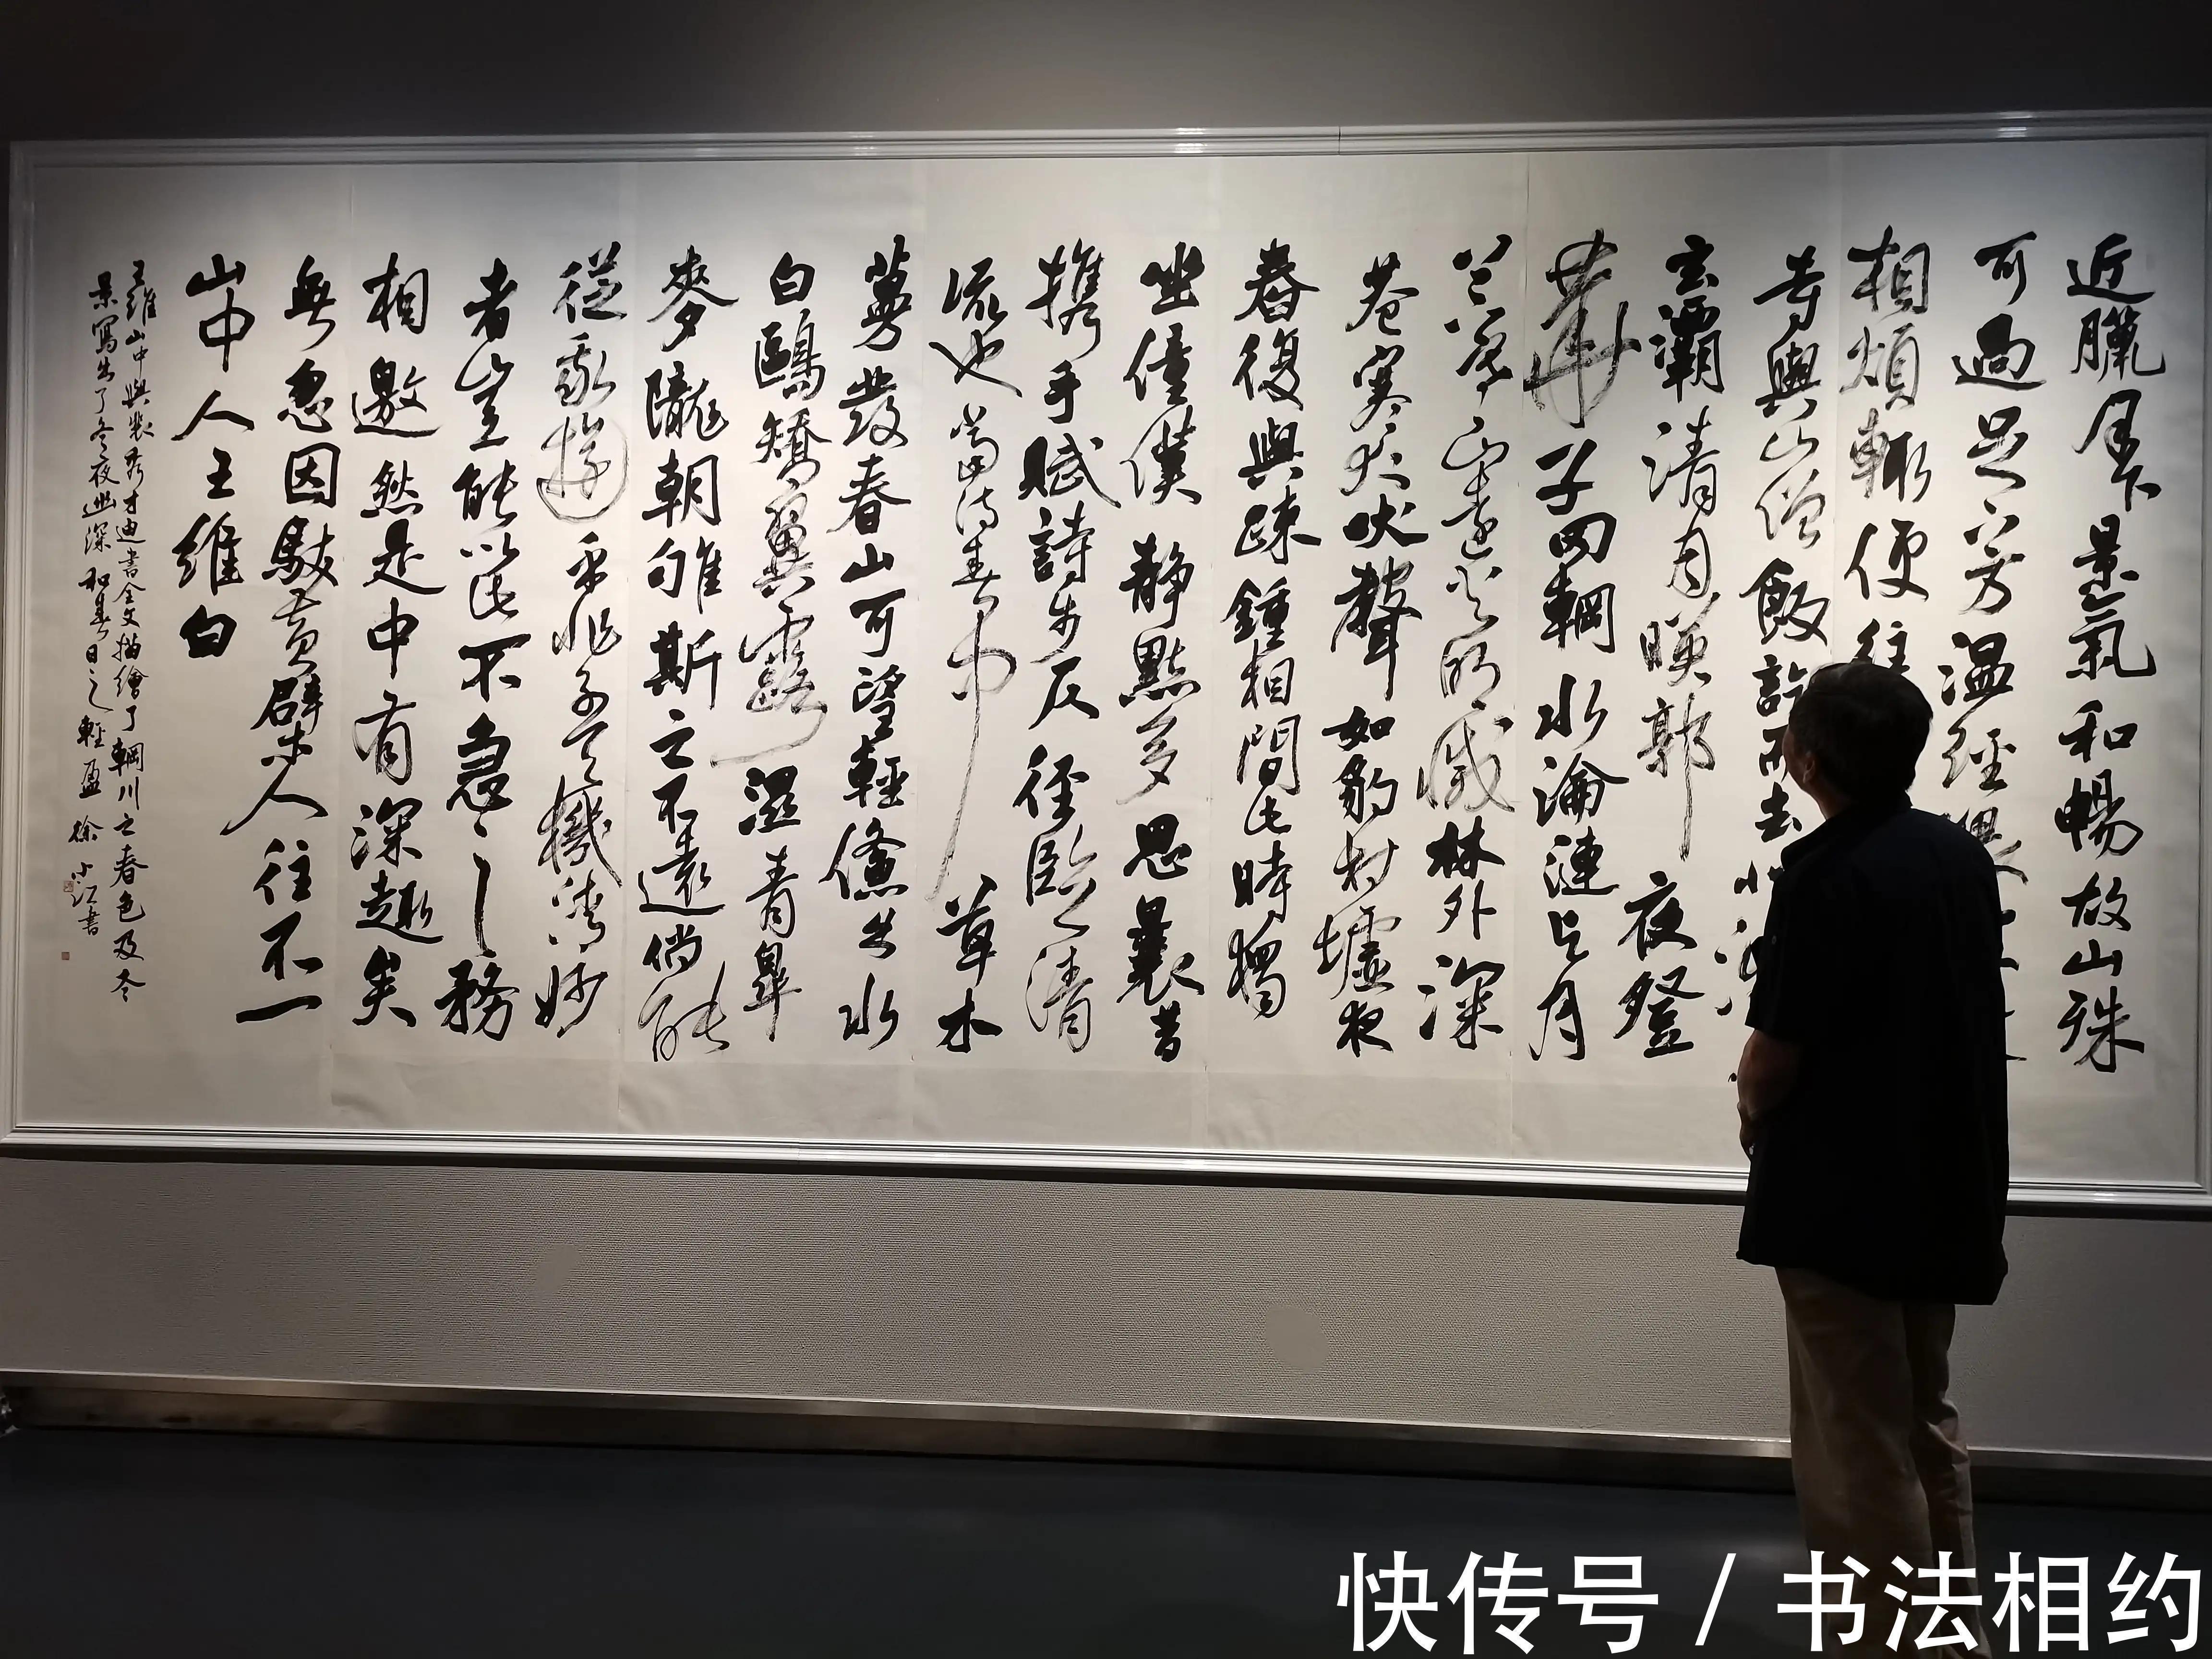 近臘月下景氣和暢故山殊
可過足下方温經
相煩輒便往
寺與山僧飯訖而去北涉
玄灞清月映郭夜登
華子岡輞水淪漣與月
上下寒山遠火明滅林外深
巷寒犬吠聲如豹村墟夜
舂復與疎鐘相間此時獨
坐僮僕静默多思曩昔
携手賦詩步仄徑臨清
流也當待春中草木
蔓發春山可望輕鯈出水
白鷗矯翼露濕青皋
麥隴朝雊斯之不遠倘能
從我遊乎非子天機清妙
者豈能以此不急之務
相邀然是中有深趣矣
無忽因馱黄檗人往不一
山中人王維白
王維山中與裴秀才迪書全文描繪了輞川之春色及冬
景寫出了冬夜幽深和春日之輕盈 徐小江書
快传号 / 书法相约